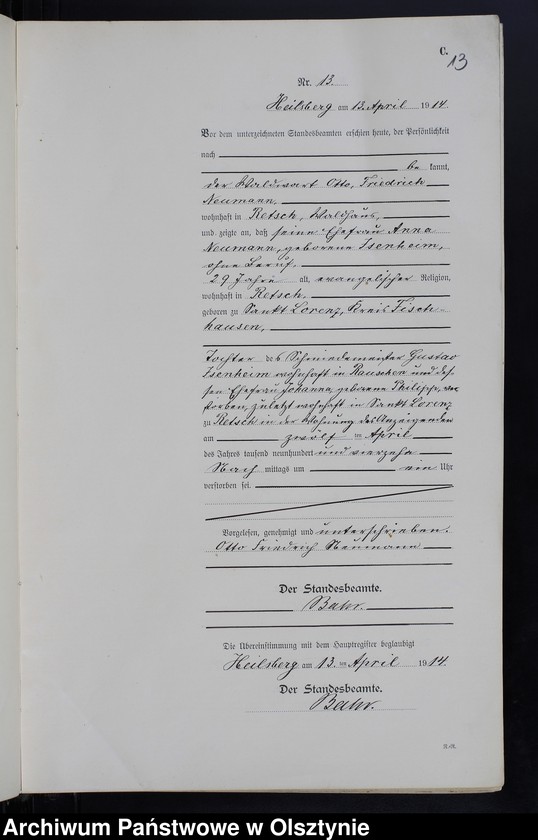 C.
13
Nr. 13.
Heilsberg am 13. April 1914.
Vor dem unterzeichneten Standesbeamten erschien heute, der Persönlichkeit
nach
be kannt,
der Waldwart Otto, Friedrich
Neumann,
wohnhaft in Retsch, Waldhaus,
und zeigte an, daß seine Ehefrau Anna
Neumann, geborene Isenheim,
ohne Beruf,
29 Jahre alt, evangelischer Religion,
wohnhaft in Retsch,
geboren zu Sankt Lorenz, Kreis Fisch-
hausen,
Tochter des Schmiedemeister Gustav
Isenheim wohnhaft in Rauschen und des-
sen Ehefrau Johanna, geborene Philipp, ver-
storben, zuletzt wohnhaft in Sankt Lorenz
zu Retsch in der Wohnung des Anzeigenden
am zwölf ten April
des Jahres tausend neunhundert und vierzehn
Nach mittags um ein Uhr
verstorben sei.
Vorgelesen, genehmigt und unterschrieben.
Otto Friedrich Neumann
Der Standesbeamte.
Bahr.
Die Übereinstimmung mit dem Hauptregister beglaubigt
Heilsberg am 13. ten April 1914.
Der Standesbeamte.
Bahr.
Archiwum Państwowe w Olsztynie